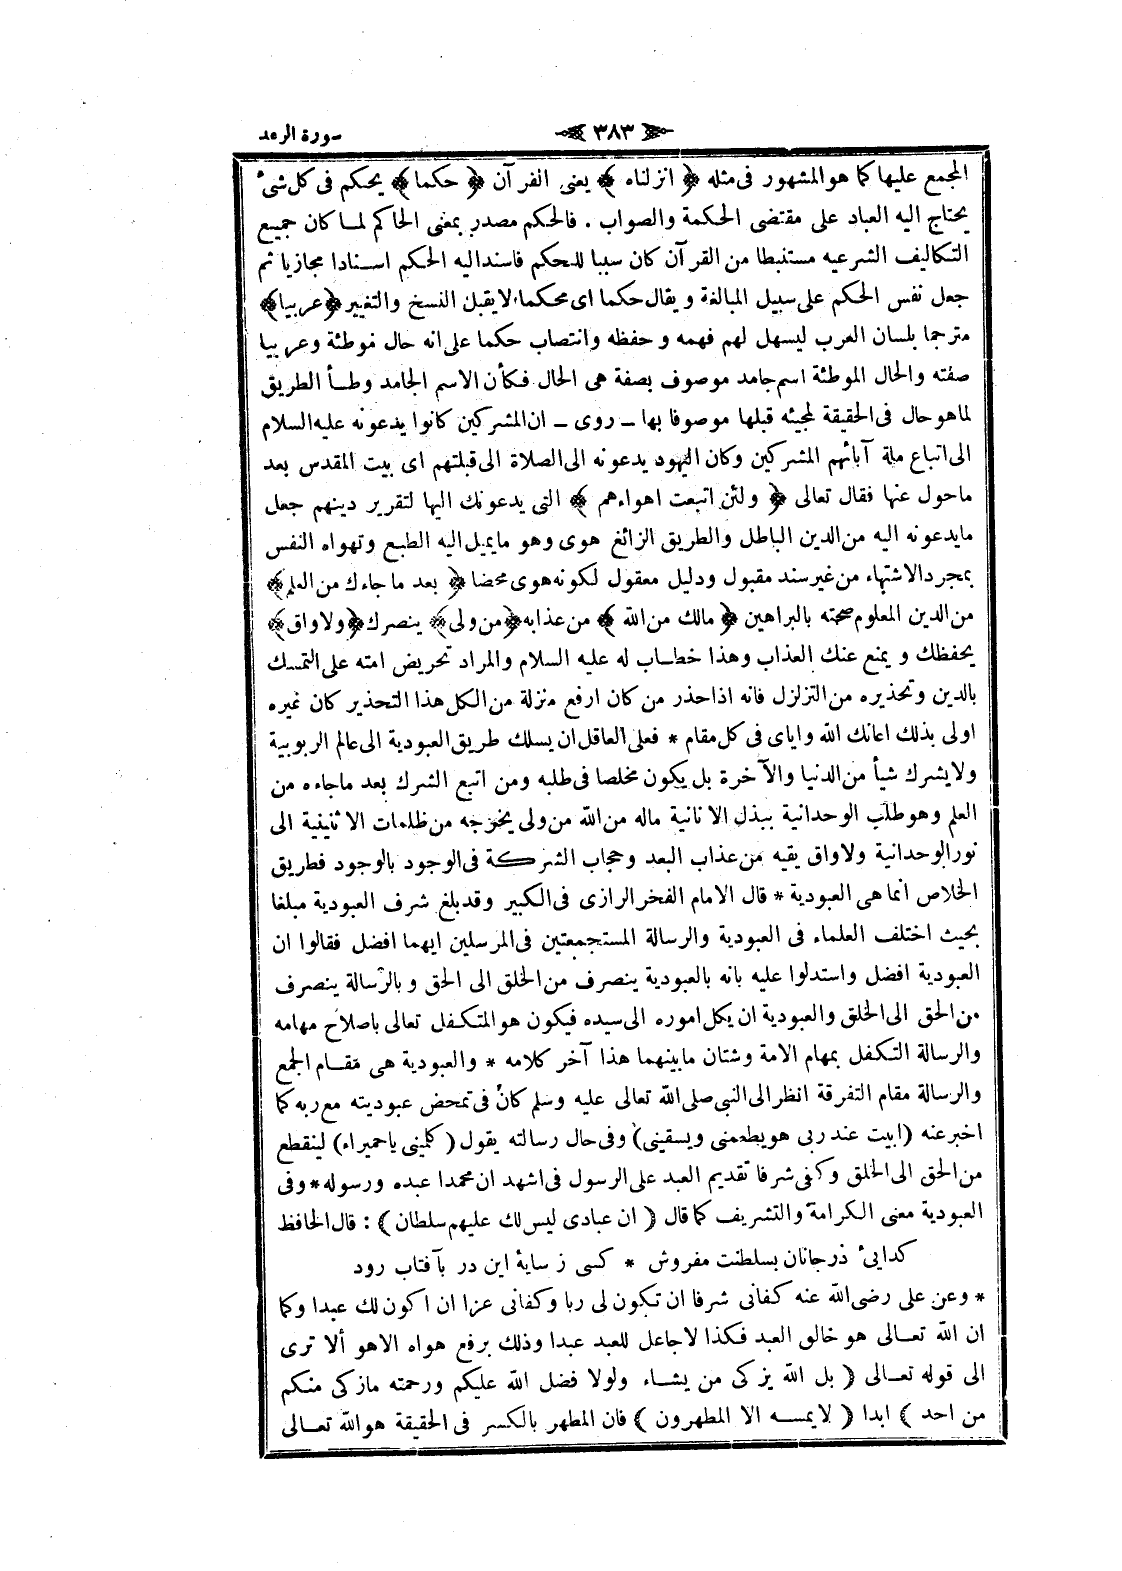 سورة الرعد
٣٨٣
المجمع عليها كما هو المشهور فى مثله ﴿ انزلناه ﴾ يعنى القرآن ﴿ حكما ﴾ يحكم فى كل شىء
يحتاج اليه العباد على مقتضى الحكمة والصواب . فالحكم مصدر بمعنى الحاكم لما كان جميع
التكاليف الشرعيه مستنبطا من القرآن كان سببا للحكم فاسند اليه الحكم اسنادا مجازيا ثم
جعل نفس الحكم على سبيل المبالغة ويقال حكما اى محكما لا يقبل النسخ والتغيير ﴿ عربيا ﴾
مترجما بلسان العرب ليسهل لهم فهمه وحفظه وانتصاب حكما على انه حال موطئة وعربيا
صفته والحال الموطئة اسم جامد موصوف بصفة هى الحال فكأن الاسم الجامد وطأ الطريق
لما هو حال فى الحقيقة لمجيئه قبلها موصوفا بها ـ روى ـ ان المشركين كانوا يدعونه عليه السلام
الى اتباع ملة آبائهم المشركين وكان اليهود يدعونه الى الصلاة الى قبلتهم اى بيت المقدس بعد
ما حول عنها فقال تعالى ﴿ ولئن اتبعت اهواءهم ﴾ التى يدعونك اليها لتقرير دينهم جعل
ما يدعونه اليه من الدين الباطل والطريق الزائغ هوى وهو ما يميل اليه الطبع وتهواه النفس
بمجرد الاشتهاء من غير سند مقبول ودليل معقول لكونه هوى محضا ﴿ بعد ما جاءك من العلم ﴾
من الدين المعلوم صحته بالبراهين ﴿ مالك من الله ﴾ من عذابه ﴿ من ولى ﴾ ينصرك ﴿ ولا واق ﴾
يحفظك ويمنع عنك العذاب وهذا خطاب له عليه السلام والمراد تحريض امته على التمسك
بالدين وتحذيره من التزلزل فانه اذا حذر من كان ارفع منزلة من الكل هذا التحذير كان غيره
اولى بذلك اعانك الله واياى فى كل مقام * فعلى العاقل ان يسلك طريق العبودية الى عالم الربوبية
ولا يشرك شيأ من الدنيا والآخرة بل يكون مخلصا فى طلبه ومن اتبع الشرك بعد ما جاءه من
العلم وهو طلب الوحدانية ببذل الانانية ماله من الله من ولى يخرجه من ظلمات الاثنينية الى
نور الوحدانية ولا واق يقيه من عذاب البعد وحجاب الشركة فى الوجود بالوجود فطريق
الخلاص انما هى العبودية * قال الامام الفخر الرازى فى الكبير وقد بلغ شرف العبودية مبلغا
بحيث اختلف العلماء فى العبودية والرسالة المستجمعتين فى المرسلين ايهما افضل فقالوا ان
العبودية افضل واستدلوا عليه بانه بالعبودية ينصرف من الخلق الى الحق وبالرسالة ينصرف
من الحق الى الخلق والعبودية ان يكل اموره الى سيده فيكون هو المتكفل تعالى باصلاح مهامه
والرسالة التكفل بمهام الامة وشتان ما بينهما هذا آخر كلامه * والعبودية هى مقام الجمع
والرسالة مقام التفرقة انظر الى النبى صلى الله تعالى عليه وسلم كان فى تمحض عبوديته مع ربه كما
اخبر عنه (ابيت عند ربى هو يطعمنى ويسقينى) وفى حال رسالته يقول (كلمينى يا حميراء) لينقطع
من الحق الى الخلق وكفى شرفا تقديم العبد على الرسول فى اشهد ان محمدا عبده ورسوله * وفى
العبودية معنى الكرامة والتشريف كما قال ( ان عبادى ليس لك عليهم سلطان ) : قال الحافظ
كدايىء درجانان بسلطنت مفروش * كسى ز سايۀ اين در بآفتاب رود
* وعن على رضى الله عنه كفانى شرفا ان تكون لى ربا وكفانى عزا ان اكون لك عبدا وكما
ان الله تعالى هو خالق العبد فكذا لا جاعل للعبد عبدا وذلك برفع هواه الا هو ألا ترى
الى قوله تعالى ( بل الله يزكى من يشاء ولولا فضل الله عليكم ورحمته مازكى منكم
من احد ) ابدا ( لا يمسه الا المطهرون ) فان المطهر بالكسر فى الحقيقة هو الله تعالى